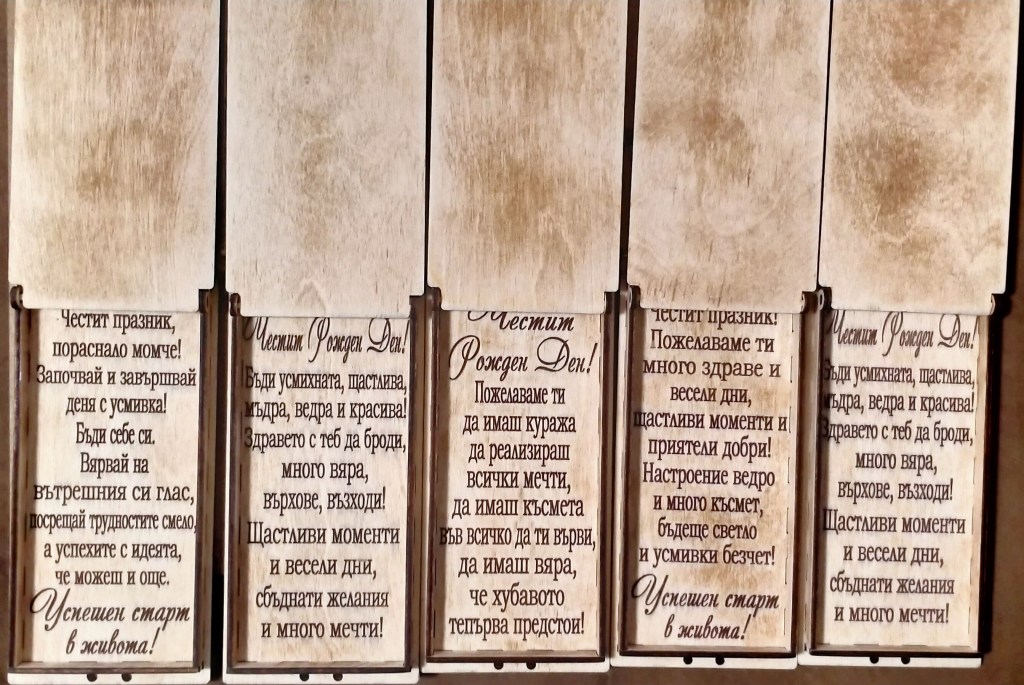 Честит празник,
пораснало момче!
Започвай и завършвай
деня с усмивка!
Бъди себе си.
Вярвай на
вътрешния си глас,
посрещай трудностите смело,
а успехите с идеята,
че можеш и още.
Успешен старт
в живота!
Честит Рожден Ден!
Бъди усмихната, щастлива,
мъдра, ведра и красива!
Здравето с теб да броди,
много вяра,
върхове, възходи!
Щастливи моменти
и весели дни,
сбъднати желания
и много мечти!
Честит
Рожден Ден!
Пожелаваме ти
да имаш куража
да реализираш
всички мечти,
да имаш късмета
във всичко да ти върви,
да имаш вяра,
че хубавото
тепърва предстои!
Честит празник!
Пожелаваме ти
много здраве и
весели дни,
щастливи моменти и
приятели добри!
Настроение ведро
и много късмет,
бъдеще светло
и усмивки безчет!
Успешен старт
в живота!
Честит Рожден Ден!
Бъди усмихната, щастлива,
мъдра, ведра и красива!
Здравето с теб да броди,
много вяра,
върхове, възходи!
Щастливи моменти
и весели дни,
сбъднати желания
и много мечти!